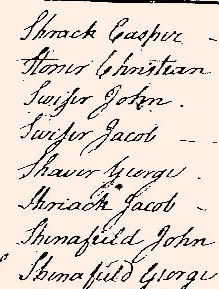 Shrack Casper -
Stoner Christian
Swiser John.
Swiser Jacob - -
Shaver George.
Shriack Jacob -
Shenafeild John
Shenafeild George